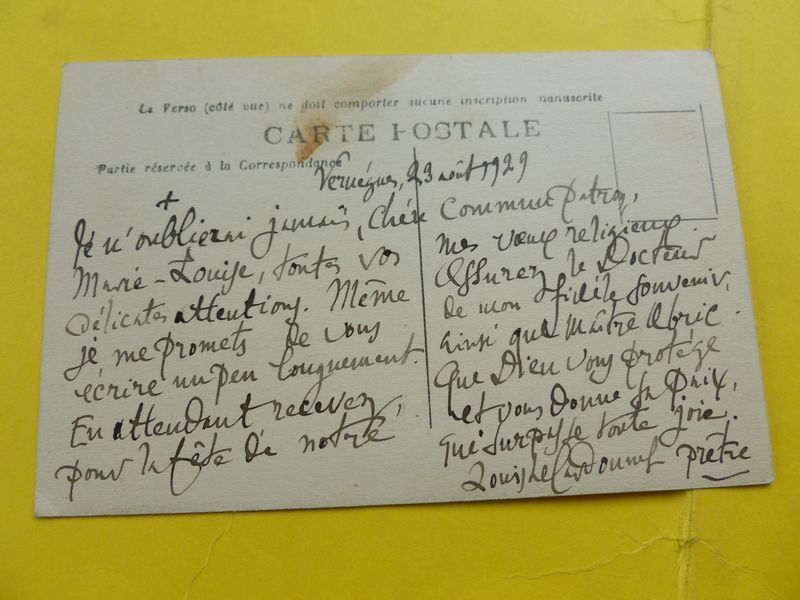 Le Verso (côté vue) ne doit comporter aucune inscription manuscrite
CARTE POSTALE
Partie réservée à la Correspondance
Vernègues, 23 août 1929
+
Je n'oublierai jamais, chère
Marie-Louise, toutes vos
délicates attentions. Même
je me promets de vous
écrire un peu longuement.
En attendant recevez,
pour la fête de notre
commune patronne,
mes vœux religieux.
Assurez le Docteur
de mon fidèle souvenir,
ainsi que Maître Abric.
Que Dieu vous protège
et vous donne sa paix,
qui surpasse toute joie.
Louis Le Cardonnel prêtre